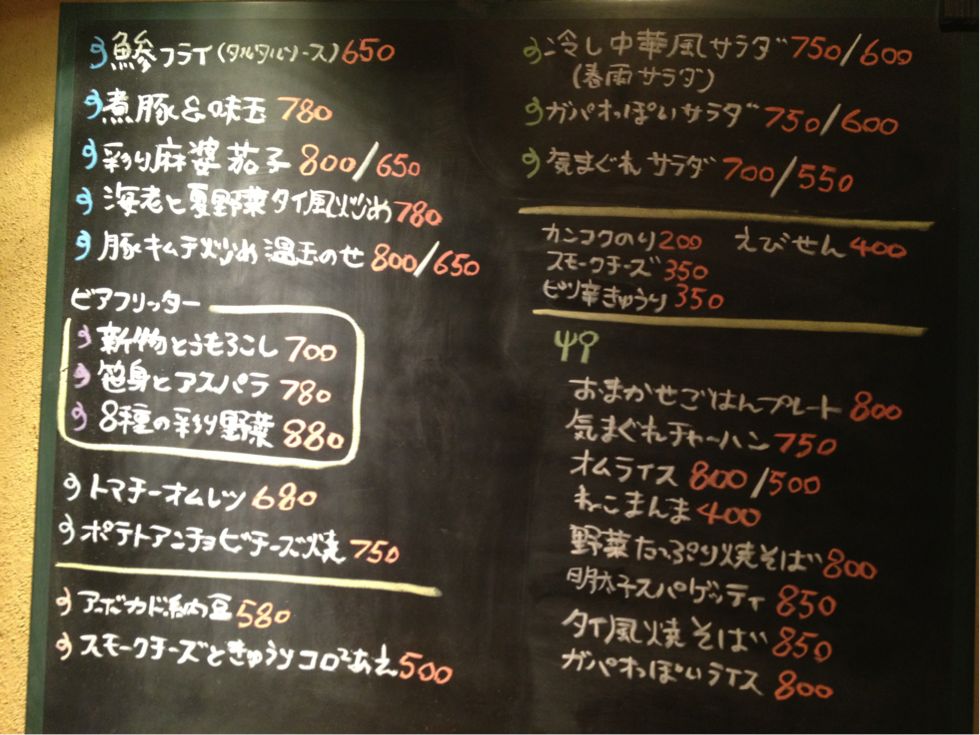 鯵フライ(タルタルソース)650
煮豚&味玉 780
彩り麻婆茄子 800/650
海老と夏野菜タイ風炒め780
豚キムチ炒め温玉のせ 800/650
ビアフリッター
新物とうもろこし 700
笹身とアスパラ 780
8種の彩り野菜 880
トマチーオムレツ 680
ポテトアンチョビチーズ焼 750
アボカド納豆 580
スモークチーズときゅうりコロコロあえ500
冷し中華風サラダ 750/600
(春雨サラダ)
ガパオっぽいサラダ 750/600
気まぐれサラダ 700/550
カンコクのり 200 えびせん 400
スモークチーズ 350
ピリ辛きゅうり 350
おまかせごはんプレート 800
気まぐれチャーハン 750
オムライス 800/500
ねこまんま 400
野菜たっぷり焼そば 800
明太子スパゲッティ 850
タイ風焼そば 850
ガパオっぽいライス 800